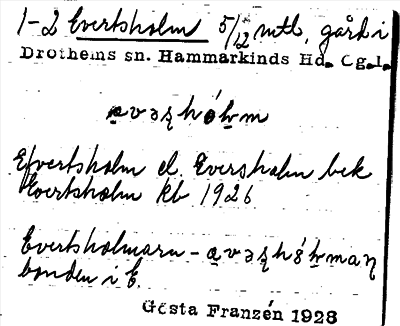 1-2 Evertsholm 5/12 mtl, gård i
Drothems sn. Hammarkinds Hd. Ög.l.
Evertsholm el. Eversholm bek
Evertsholm kb 1926
Evertsholmarn -
bonden i E.
Gösta Franzén 1928